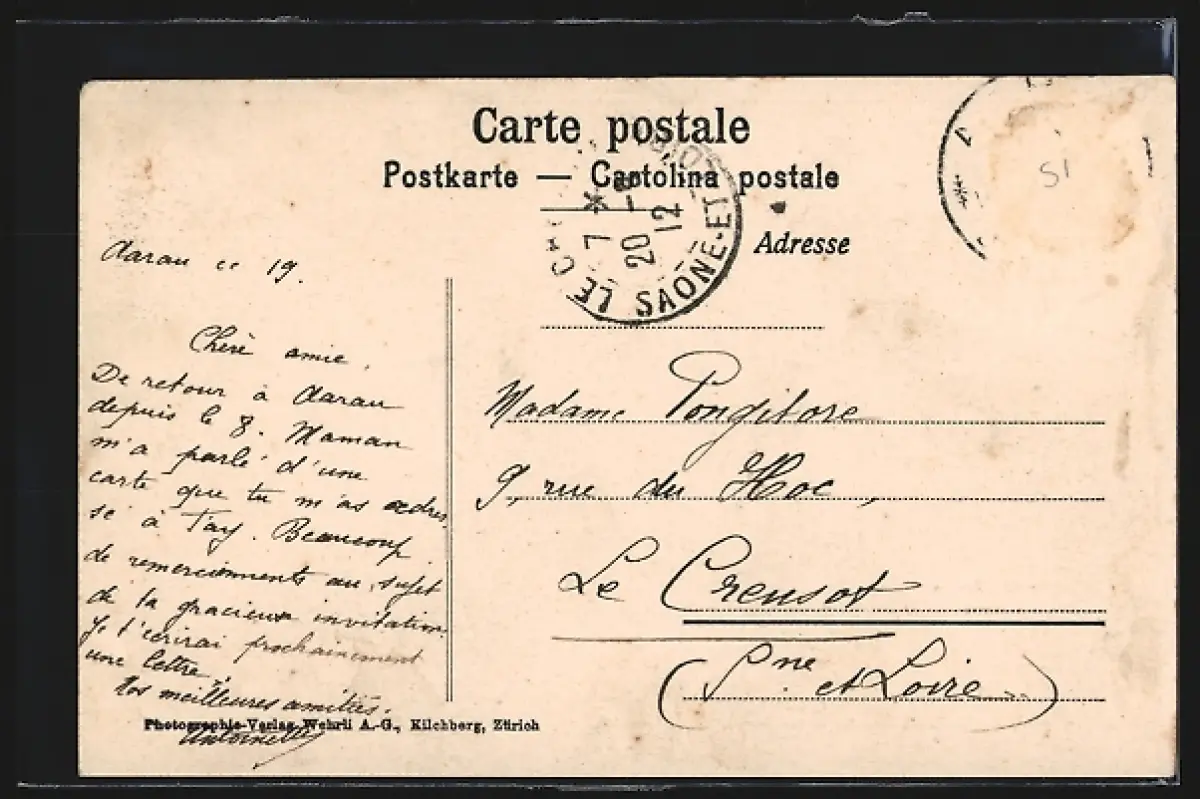 Carte postale
Postkarte — Cartolina postale
Adresse
LE C
SAÔNE-ET-LOIRE
7 *
20 -8
12
51
Aarau ce 19.
Chère amie,
De retour à Aarau
depuis le 8. Maman
m'a parlé d'une
carte que tu m'as adres
sé à Tay. Beaucoup
de remerciements au sujet
de ta gracieuse invitation.
Je t'écrirai prochainement
une lettre.
Nos meilleures amitiés.
Antoinette
Madame Pongitore
9, rue du Hoc,
Le Creusot
(Sne et Loire)
Photographie-Verlag Wehrli A.-G., Kilchberg, Zürich